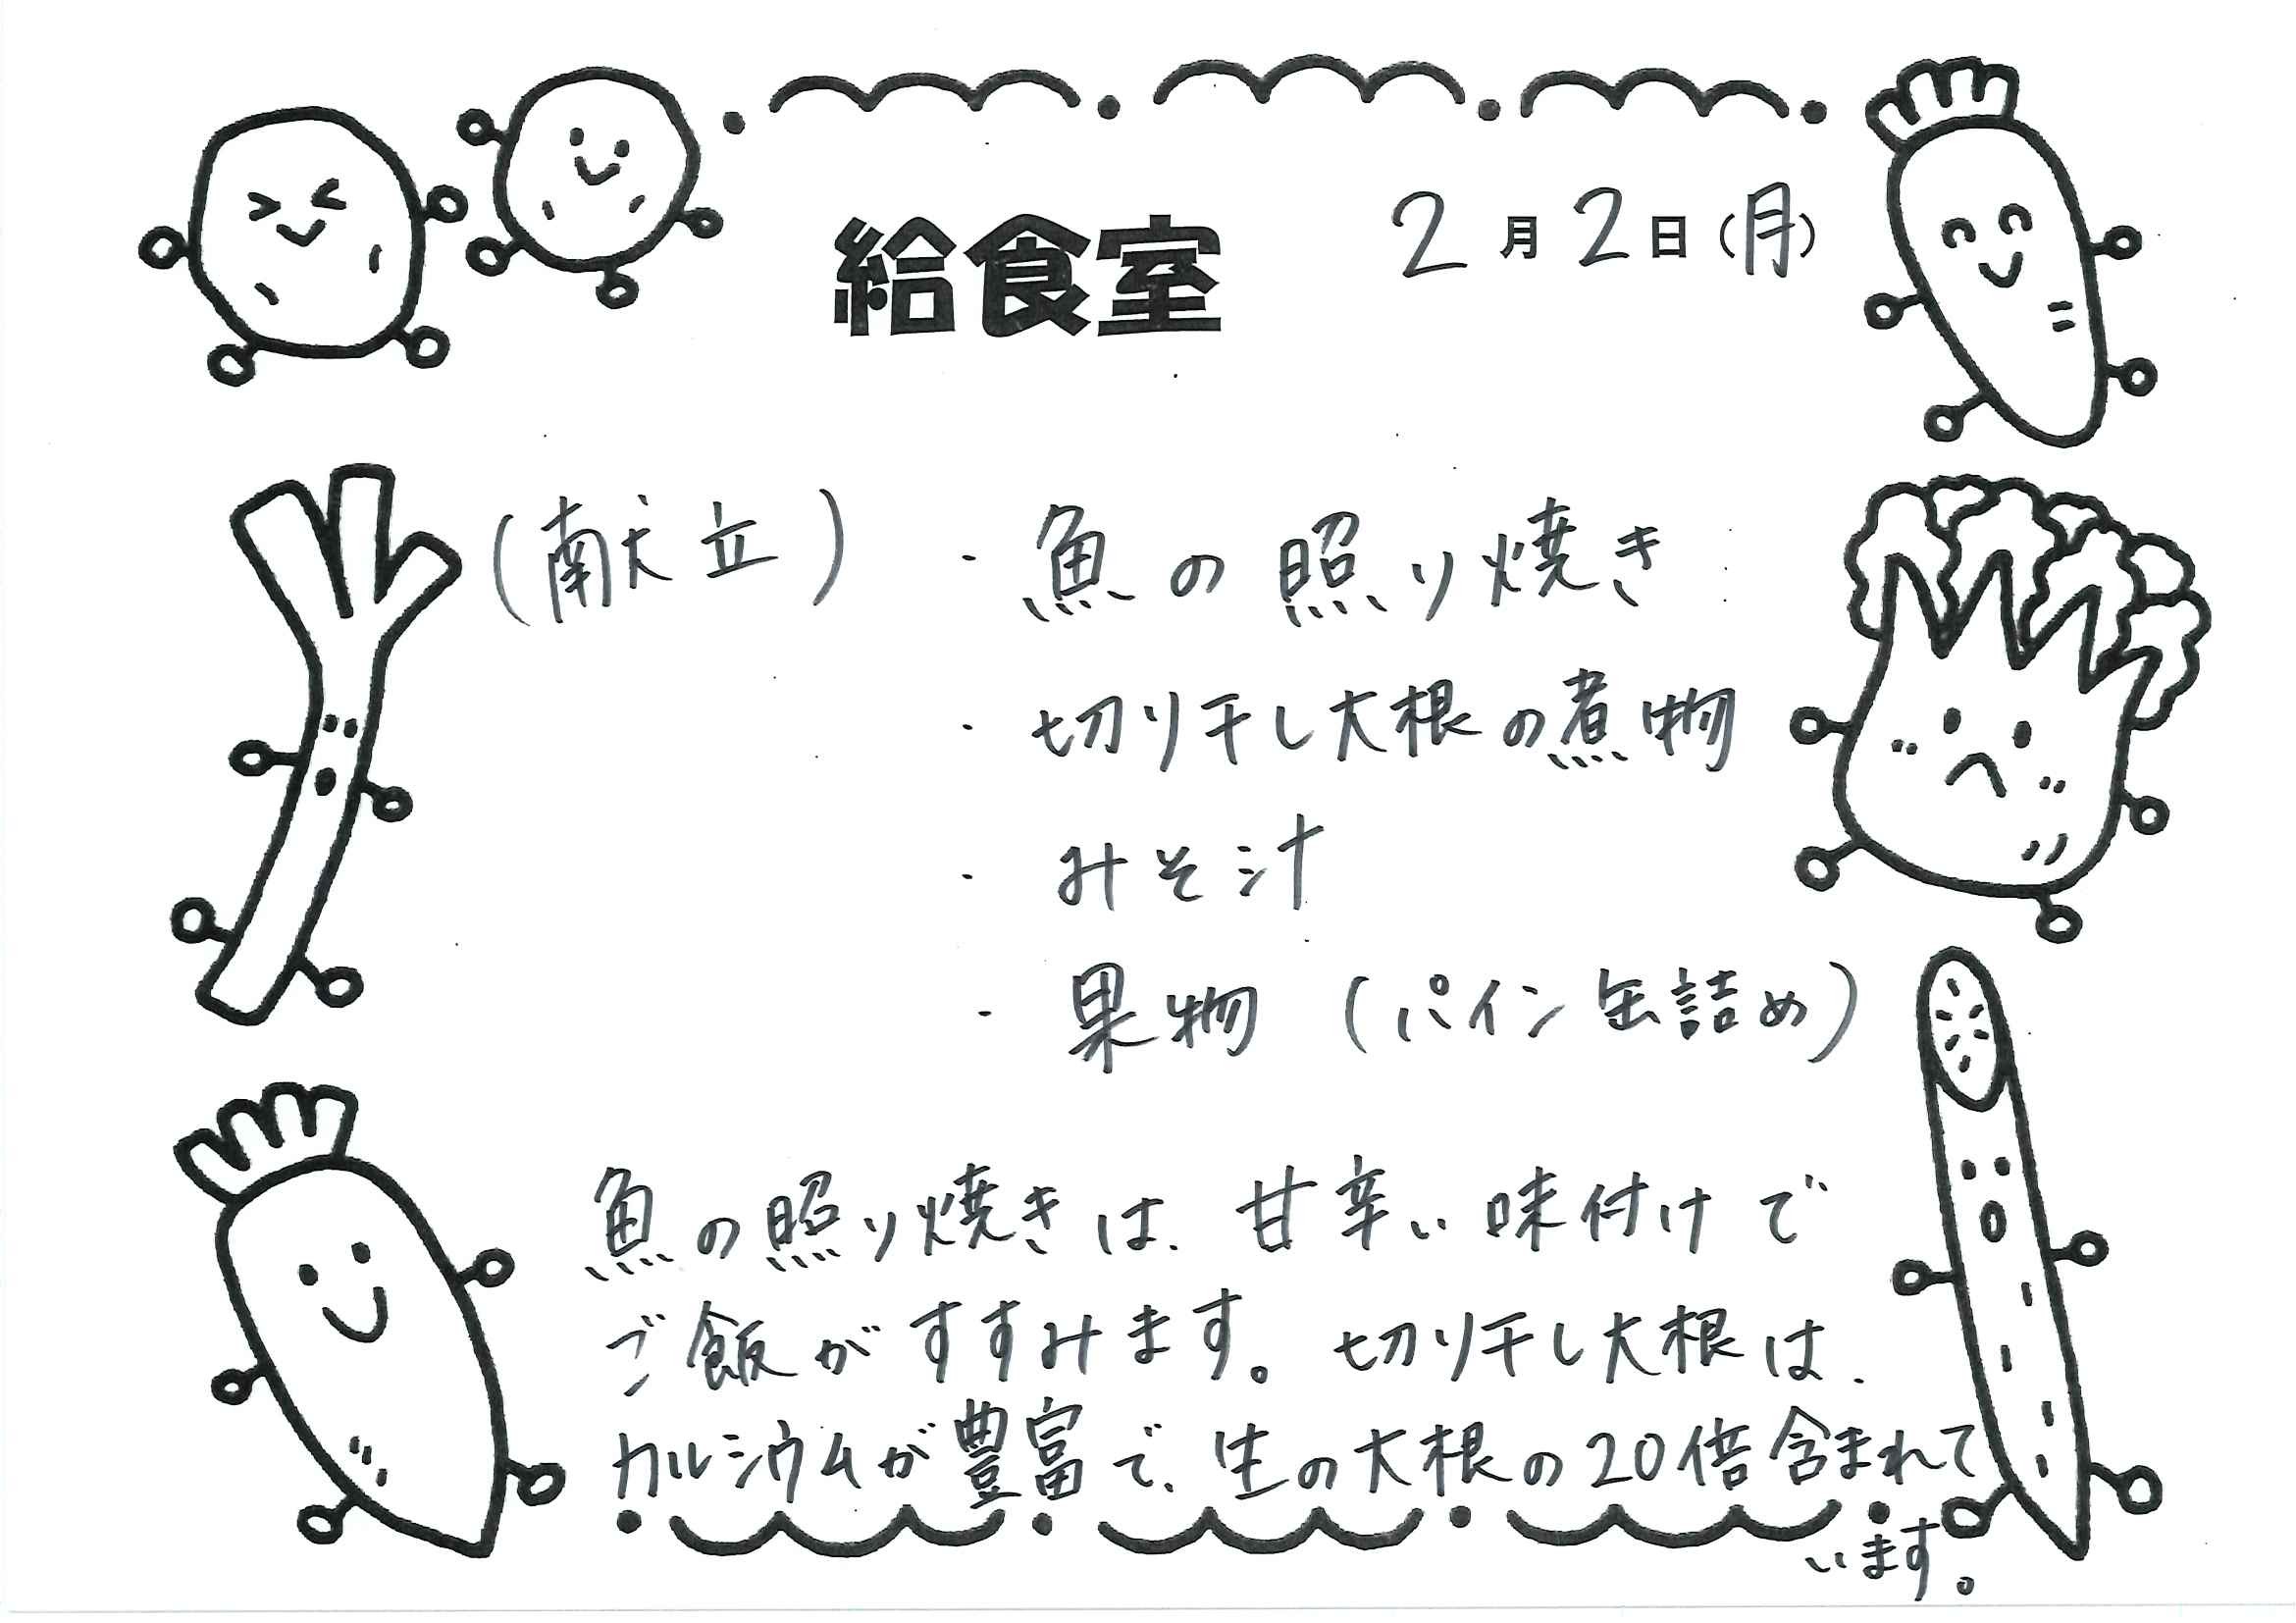 給食室
2月2日(月)
(献立)
・魚の照り焼き
・切り干し大根の煮物
・みそ汁
・果物(パイン缶詰め)
魚の照り焼きは、甘辛い味付けで
ご飯がすすみます。切り干し大根は、
カルシウムが豊富で、生の大根の20倍含まれて
います。